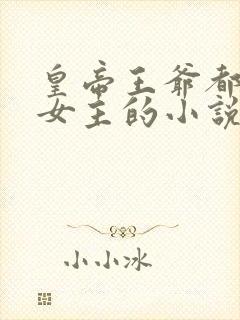 皇帝王爷都
女主的小说
小小冰